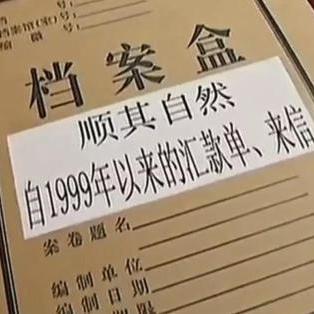 档案馆(室)号:
缩微号:
档案盒
顺其自然
自1999年以来的汇款单、来信
案卷题名
编制单位
编制日期
期限